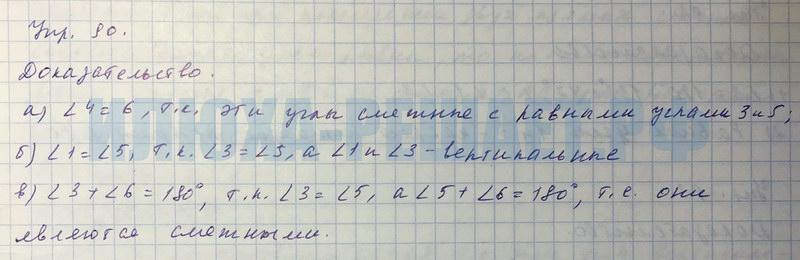 Упр. 90.
Доказательство.
а) ∠4 = 6, т.к. эти углы смежные с равными углами 3 и 5;
б) ∠1 = ∠5, т.к. ∠3 = ∠5, а ∠1 и ∠3 - вертикальные
в) ∠3 + ∠6 = 180°, т.к. ∠3 = ∠5, а ∠5 + ∠6 = 180°, т.е. они
являются смежными.